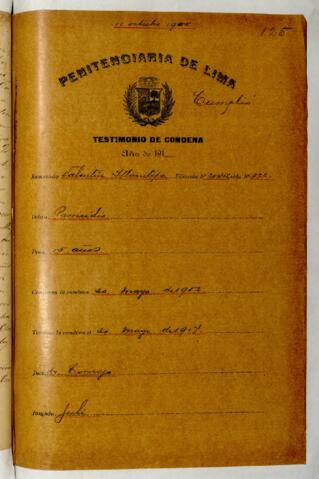 11 octubre 1900
125
PENITENCIARIA DE LIMA
Cumplió
TESTIMONIO DE CONDENA
Año de 191
Rematado Valentín Filiación Nº Celda Nº
Delito Parricidio
Pena 15 años
Comienza la condena el 20 mayo de 1902
Termina la condena el 20 mayo de 1917
Juez Dr Cornejo
Juzgado Juli